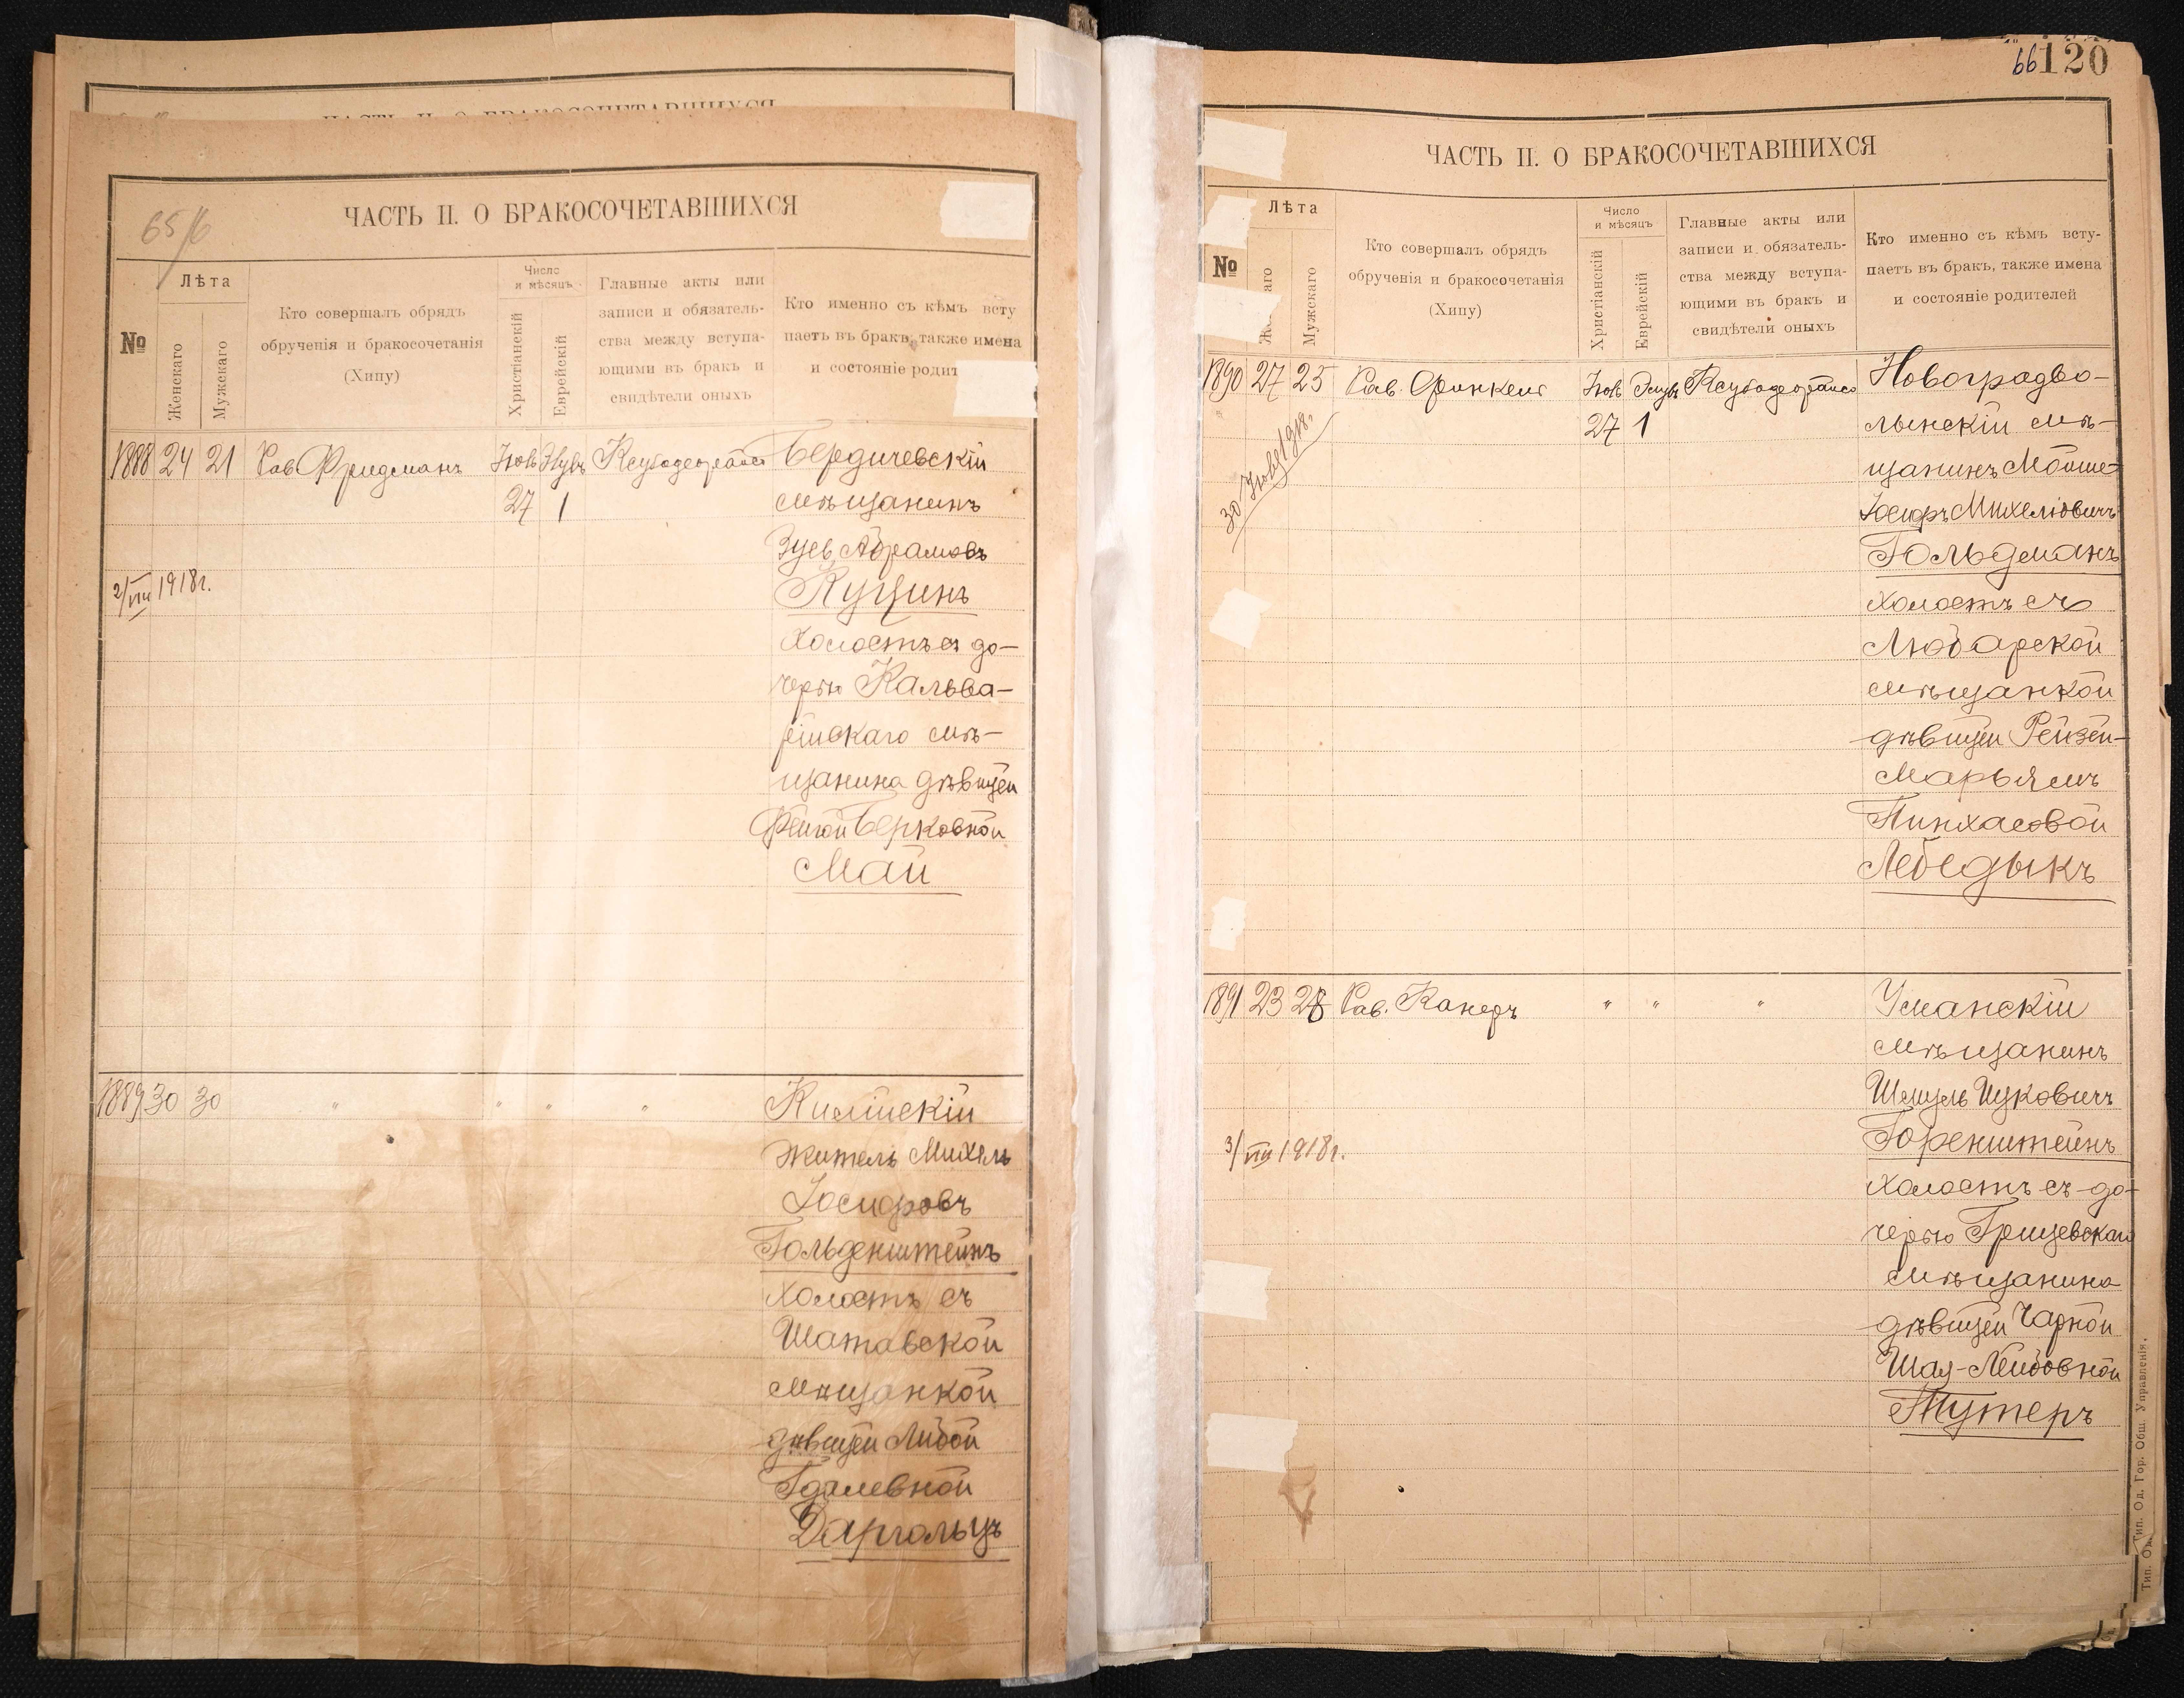 ЧАСТЬ II. О БРАКОСОЧЕТАВШИХСЯ
65/6
ЧАСТЬ II. О БРАКОСОЧЕТАВШИХСЯ
№
Лѣта
Женскаго
Мужскаго
Кто совершалъ обрядъ
обрученія и бракосочетанія
(Хипу)
Число
и мѣсяцъ
Христіанскій
Еврейскій
Главные акты или
записи и обязатель-
ства между вступа-
ющими въ бракъ и
свидѣтели оныхъ
Кто именно съ кѣмъ всту
паетъ въ бракъ, также имена
и состояніе родит
1888 24 21 Рав. Фридманъ Бердичевскій
27 1 мѣщанинъ
Зусь Абрамовъ
2/VIII 1918г. Куцинъ
холостъ съ до-
черью Кальва-
рійскаго мѣ-
щанина дѣвицей
Фейгой Берковной
Май
1889 30 30 " " " " Килійскій
житель Михель
Іосифовъ
Гольденштейнъ
холостъ съ
Шатавской
мѣщанкой
дѣвицей Либой
Гдалевной
Даргольцъ
66 120
ЧАСТЬ II. О БРАКОСОЧЕТАВШИХСЯ
№
Лѣта
Же аго
Мужскаго
Кто совершалъ обрядъ
обрученія и бракосочетанія
(Хипу)
Число
и мѣсяцъ
Христіанскій
Еврейскій
Главные акты или
записи и обязатель-
ства между вступа-
ющими въ бракъ и
свидѣтели оныхъ
Кто именно съ кѣмъ всту-
паетъ въ бракъ, также имена
и состояніе родителей
1890 27 25 Рав. Новоградво-
27 1 лынскій мѣ-
30 1918г. щанинъ Мойше-
Іосифъ Михелевичъ
Гольдманъ
холостъ съ
Любарской
мѣщанкой
дѣвицей Рейзей-
Марьямъ
Пинхасовой
Лебедыкъ
1891 23 28 Рав. Канеръ " " " Уманскій
мѣщанинъ
Шмуль Ицковичъ
3/VIII 1918г. Горенштейнъ
холостъ съ до-
черью Грицевскаго
мѣщанина
дѣвицей Чарной
Шая-Лейбовной
Тутеръ
Тип. Од. Гор. Общ. Управленія.